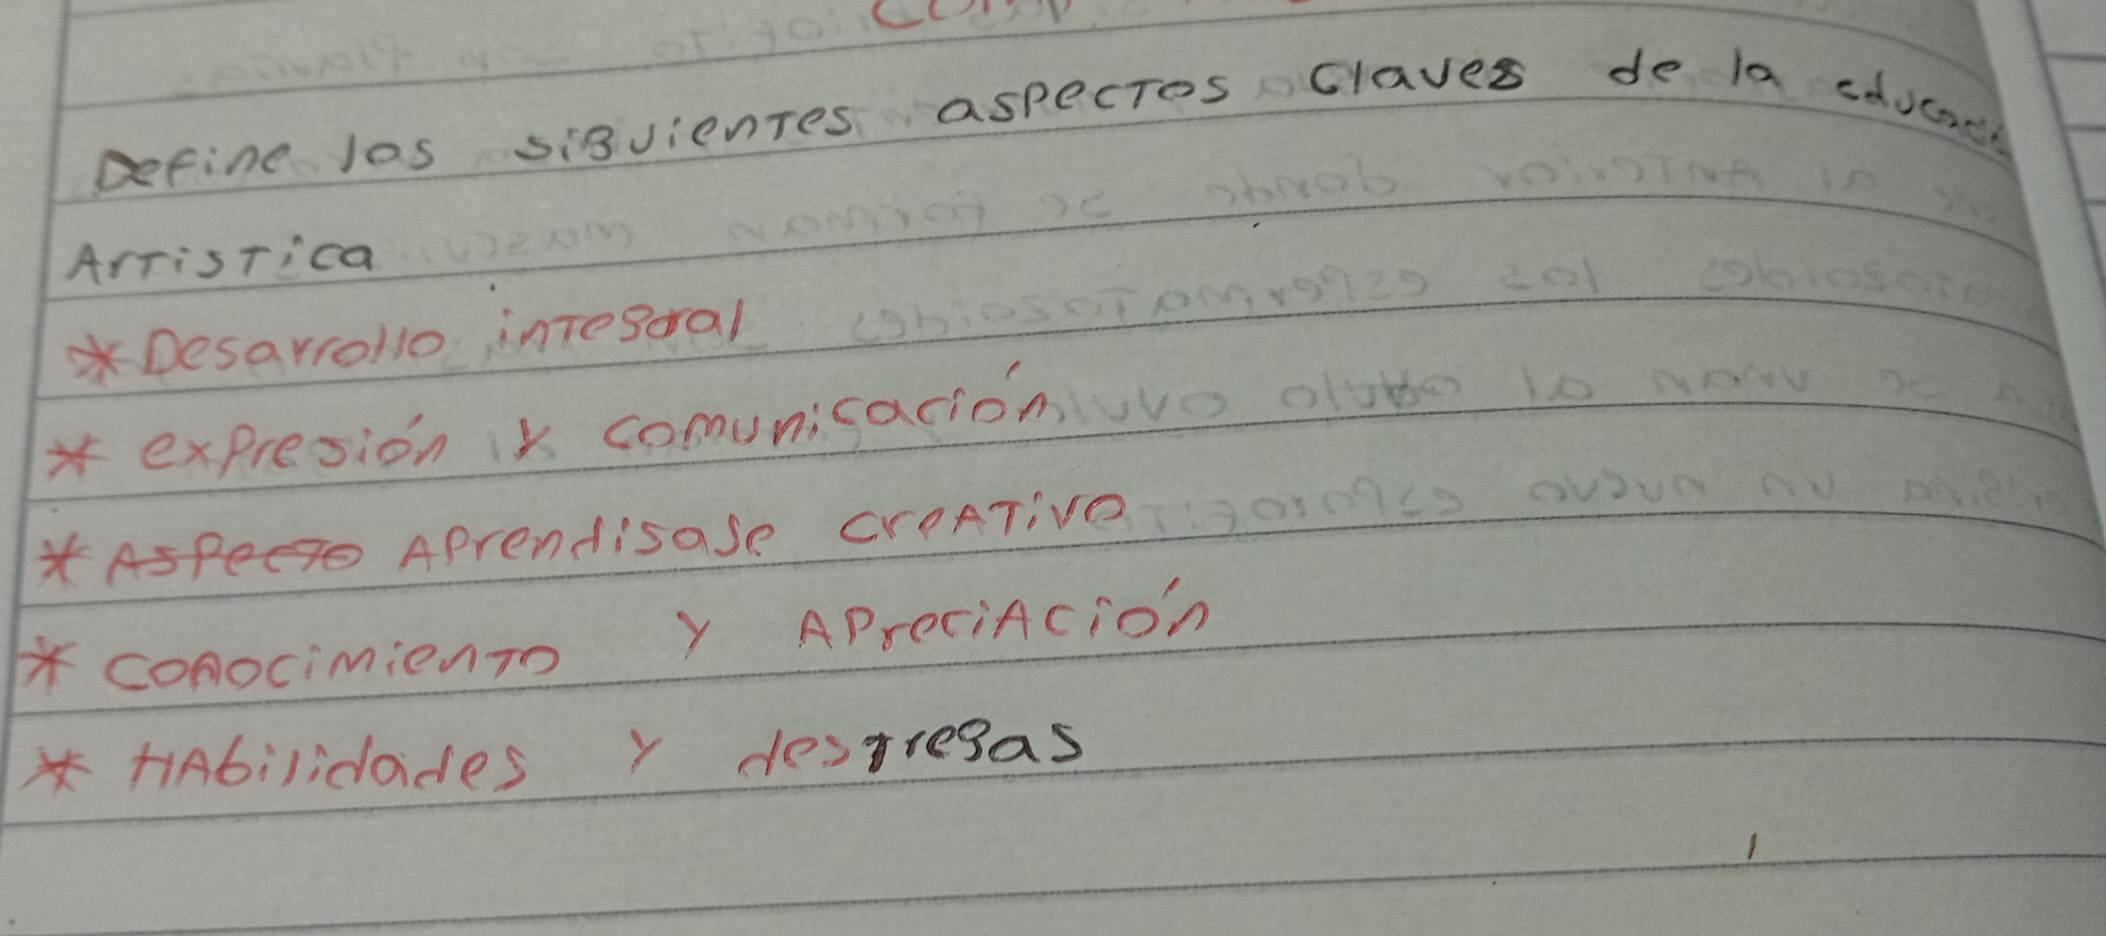 Define los siguientes aspectos claves de la educaci
Artistica
* Desarrollo integral
* expresión y comunicación
* Aspecto Aprendisaje creativo
* conocimiento y Apreciación
* HAbilidades y destregas